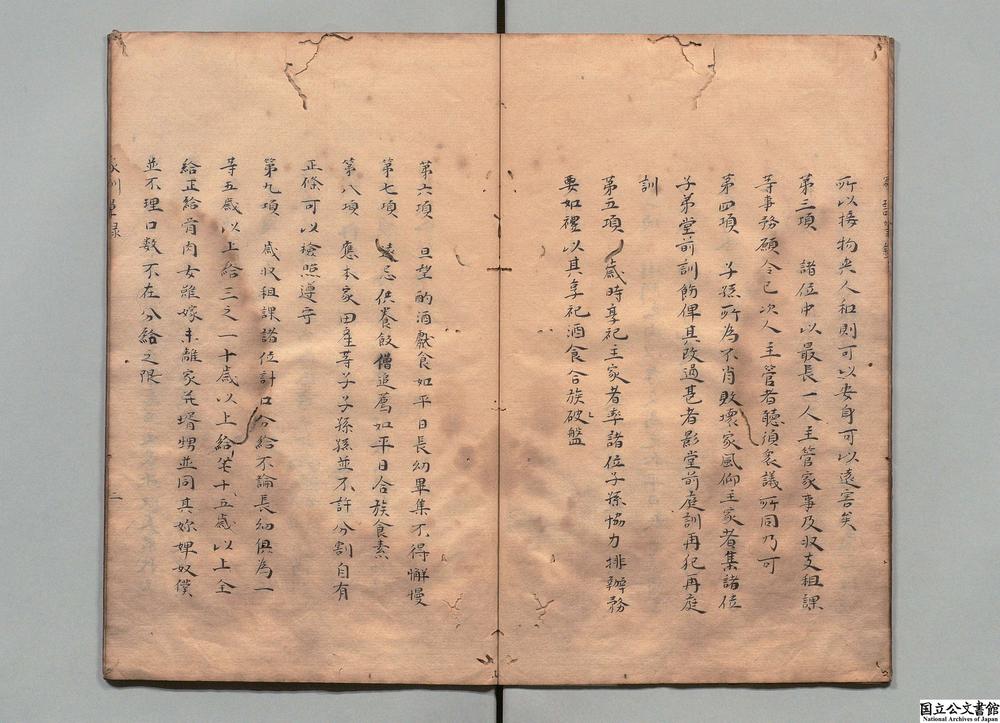 所以接物夹人和則可以安身可以遠害矣
第三項 諸位中以最長一人主管家事及收支租課
等事務願令已次人主管者聽須衆議所同乃可
第四項 子孫所為不肖敗壞家風仰主家者集諸位
子弟堂前訓飭俾其改過甚者影堂前庭訓再犯再庭
訓
第五項 歲時享祀主家者率諸位子孫協力排辦務
要如禮以其享祀酒食合族破盤
第六項 旦望酌酒獻食如平日長幼畢集不得懈慢
第七項 遠忌供養飯僧追薦如平日合族食素
第八項 應本家田產等子子孫孫並不許分割自有
正條可以檢照遵守
第九項 歲收租課諸位計口分給不論長幼俱為一
等五歲以上給三之一十歲以上給半十五歲以上全
給正給骨肉女雖嫁未離家并壻甥並同其妳婢奴僕
並不理口數不在分給之限
家訓筆錄
二
国立公文書館
National Archives of Japan